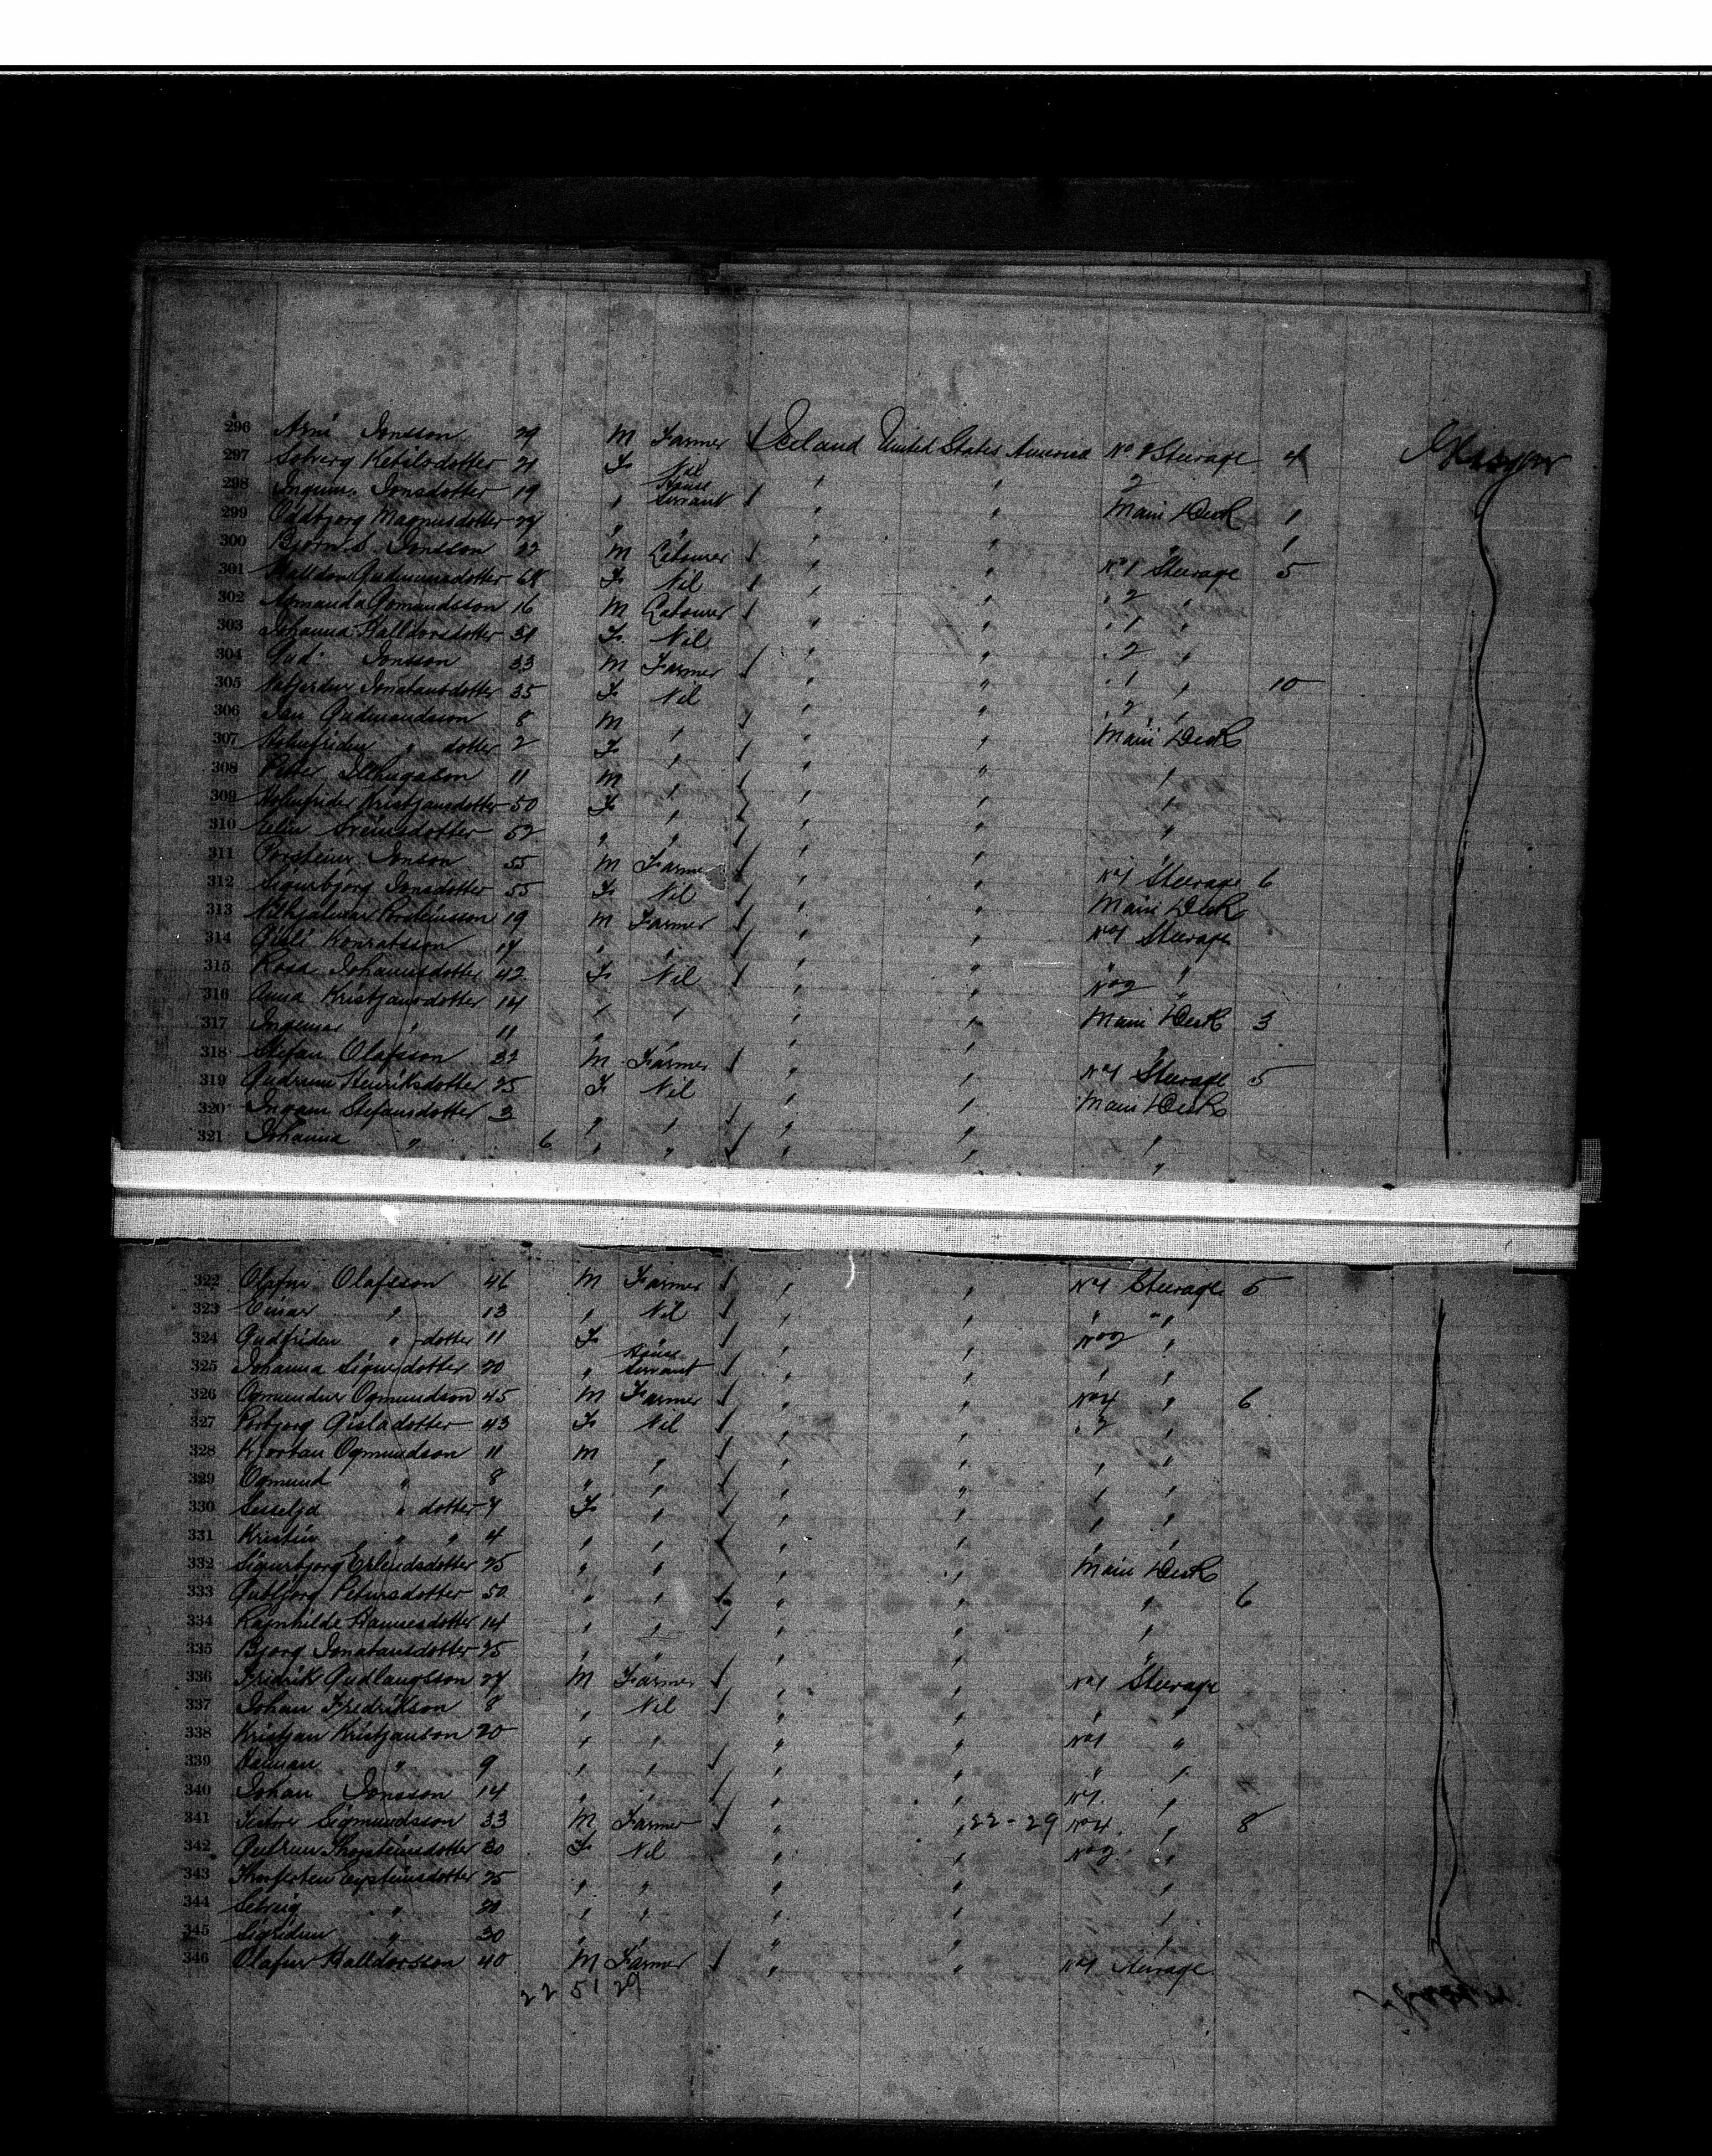 296 Arni Jonsson 29 M Farmer Iceland United States America No 2 Steerage 4 Glasgow
297 Solverg Ketilsdotter 21 F Nil " " 2
298 Ingun. Jonsdotter 19 " House Servant " " Main Deck 1
299 Oddbjorg Magnusdotter 24 " " " " " 1
300 Bjorn S. Jonsson 22 M Labourer " " No 1 Steerage 5
301 Halldora Gudmunsdotter 68 F Nil " " " 2 "
302 Asmunda Gomundsson 16 M Labourer " " " 1 "
303 Johanna Halldorsdotter 31 F Nil " " " 2 "
304 Gud. Jonsson 33 M Farmer " " " 1 " 10
305 Jonatansdotter 35 F Nil " " " 2 "
306 Jon Gudmundsson 8 M " " " Main Deck
307 Holmfriden " dotter 2 F " " " "
308 Petter Illhugason 11 M " " " "
309 Holmfrider Kristjansdotter 50 F " " " "
310 Elin Sveinsdotter 52 " " " " "
311 Porsteinn Jonson 55 M Farmer " " No 1 Steerage 6
312 Sigurbjorg Jonsdotter 55 F Nil " " Main Deck
313 Vilhjalmar Porsteinsson 19 M Farmer " " No 1 Steerage
314 Gisli Konratsson 17 " " " " " "
315 Rosa Johannsdotter 42 F Nil " " No 2 "
316 Anna Kristjansdotter 14 " " " " Main Deck 3
317 " 11 " " " " "
318 Stefan Olafsson 32 M Farmer " " No 1 Steerage 5
319 Gudrun Henriksdotter 25 F Nil " " Main Deck
320 Ingam Stefansdotter 3 " " " " "
321 Johanna " 6 " " " " "
322 Olafur Olafsson 46 M Farmer " " No 1 Steerage 5
323 Einar " 13 " Nil " " " "
324 Gudfriden " dotter 11 F " " No 2 "
325 Johanna Sigurdotter 20 " House Servant " " " "
326 Ogmundur Ogmundson 45 M Farmer " " No 4 " 6
327 Porbjorg Gisladotter 43 F Nil " " " 2 "
328 Kjartan Ogmundson 11 M " " " " "
329 Ogmund " 8 " " " " " "
330 Sesselja " dotter 7 F " " " " "
331 Kristin " " 4 " " " " " "
332 Sigurbjorg Erlendsdotter 25 " " " " Main Deck
333 Gubjorg Petursdotter 50 " " " " " 6
334 Ragnhilde Hannesdotter 14 " " " " "
335 Bjorg Jonatansdotter 25 " " " " "
336 Fridrik Gudlaugsson 27 M Farmer " " No 1 Steerage
337 Johan Fredrikson 8 " Nil " " " "
338 Kristjan Kristjanson 20 " " " " No 1 "
339 " 9 " " " " " "
340 Johan Jonsson 14 " " " " No 1 "
341 Sigmundsson 33 M Farmer " " 22-29 No 4 " 8
342 Gudrun Thorsteinsdotter 30 F Nil " " No 2 "
343 Eysteinsdotter 25 " " " " "
344 " 20 " " " " "
345 Sigridur " 30 " " " " "
346 Olafur Halldorsson 40 M Farmer " " No 1 Steerage
22 51 29